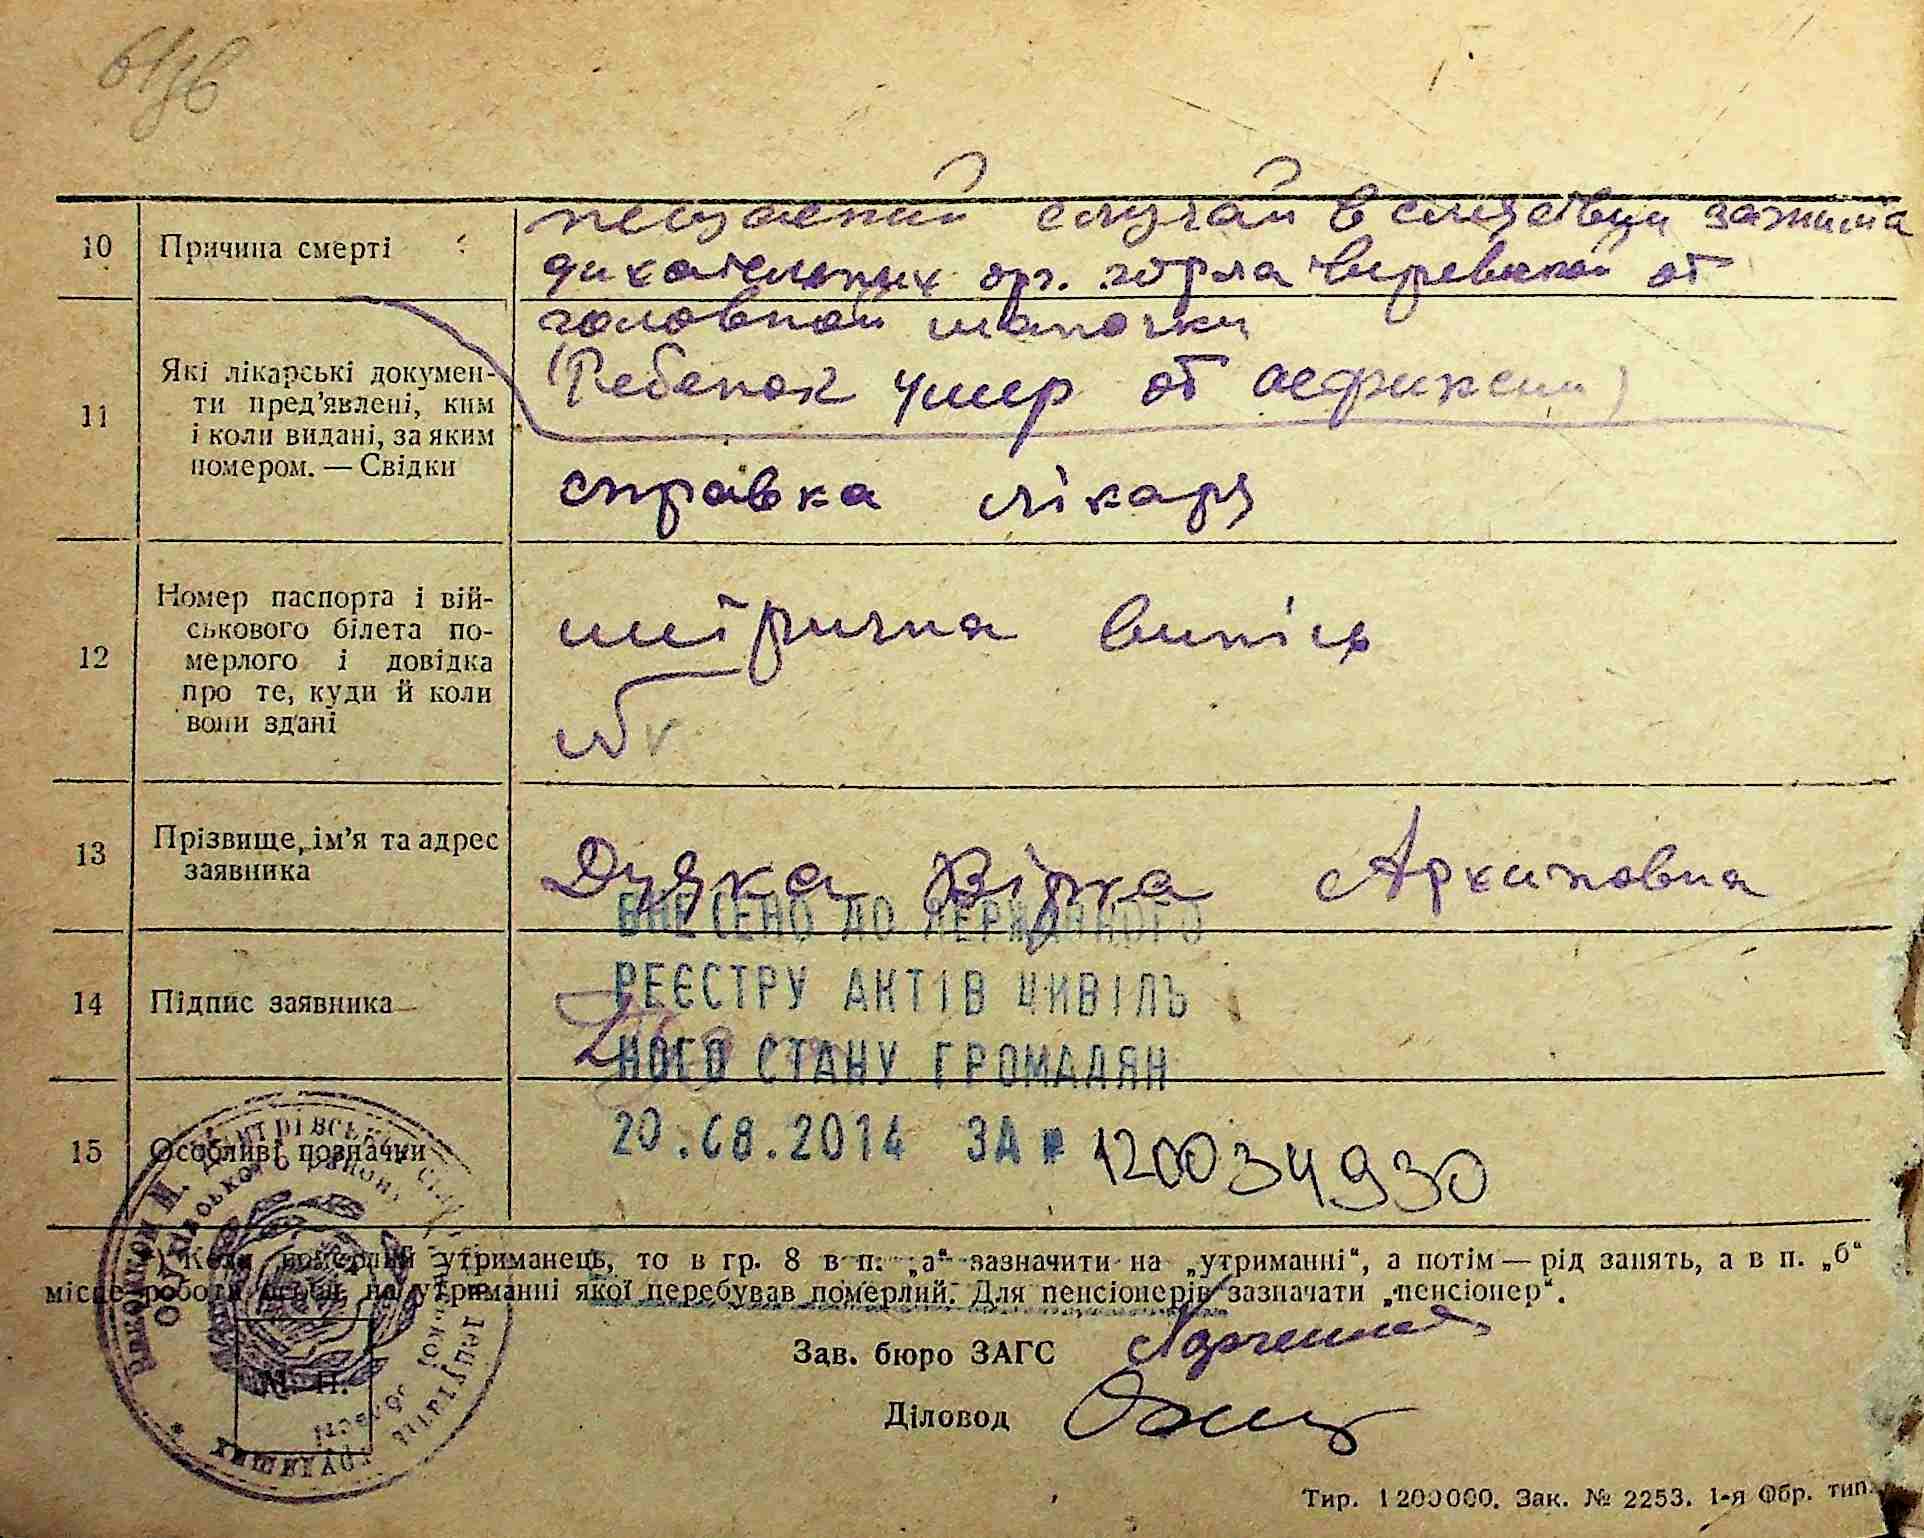 10 Причина смерті
несчасний случай в следствии зажима
дихательных орг. горла веревкой от
головной шапочки
(Ребенок умер от асфиксии)
11 Які лікарські докумен-
ти пред’явлені, ким
і коли видані, за яким
номером. — Свідки
справка лікаря
12 Номер паспорта і вій-
ськового білета по-
мерлого і довідка
про те, куди й коли
вони здані
метрична випісь
13 Прізвище, ім’я та адрес
заявника
Архиповна
14 Підпис заявника
ВНЕСЕНО ДО ДЕРЖАВНОГО
РЕЄСТРУ АКТІВ ЦИВІЛЬ
НОГО СТАНУ ГРОМАДЯН
20.08.2014 ЗА № 1200034930
15 Особливі позначки
*) Коли померлий утриманець, то в гр. 8 в п. „а“ зазначити на „утриманні“, а потім — рід занять, а в п. „б“
місце роботи особи, на утриманні якої перебував померлий. Для пенсіонерів зазначати „пенсіонер“.
Зав. бюро ЗАГС
Діловод
М. П.
Тир. 1200000. Зак. № 2253. 1-я Обр. тип.